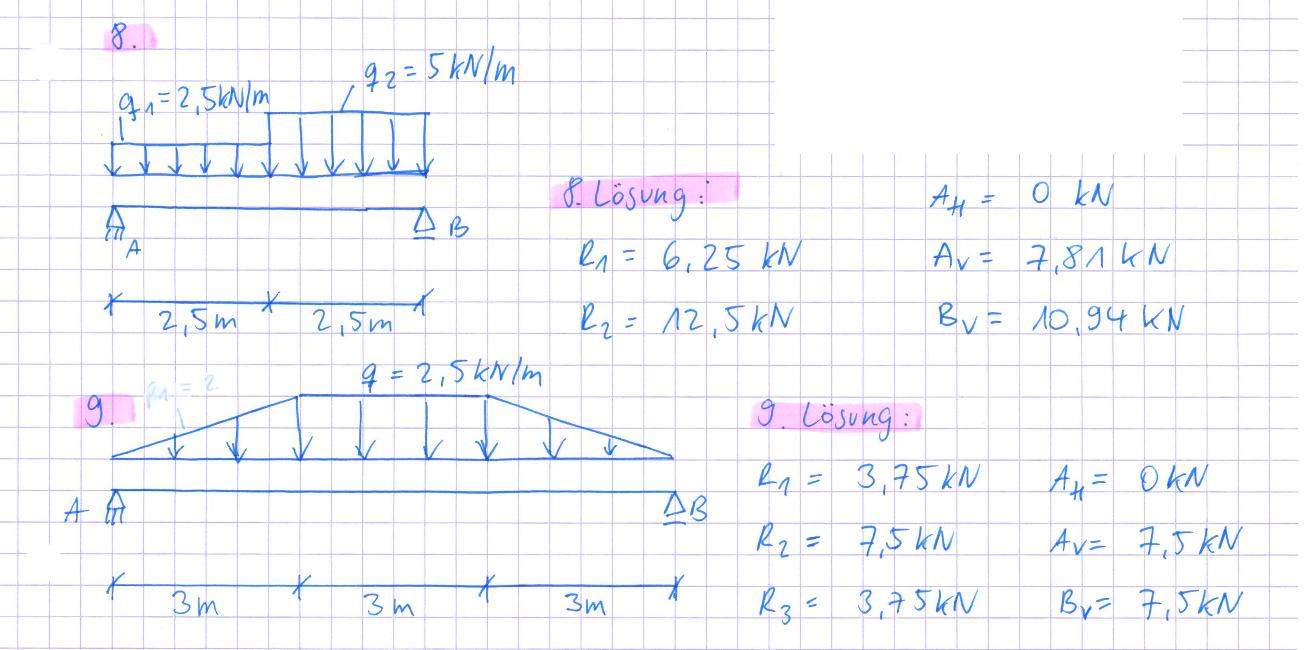 8.
q₂ = 5 kN/m
q₁ = 2,5 kN/m
A
B
2,5m 2,5m
8. Lösung:
R₁ = 6,25 kN
R₂ = 12,5 kN
A_H = 0 kN
A_V = 7,81 kN
B_V = 10,94 kN
9.
q = 2,5 kN/m
A
B
3m 3m 3m
9. Lösung:
R₁ = 3,75 kN A_H = 0 kN
R₂ = 7,5 kN A_V = 7,5 kN
R₃ = 3,75 kN B_V = 7,5 kN